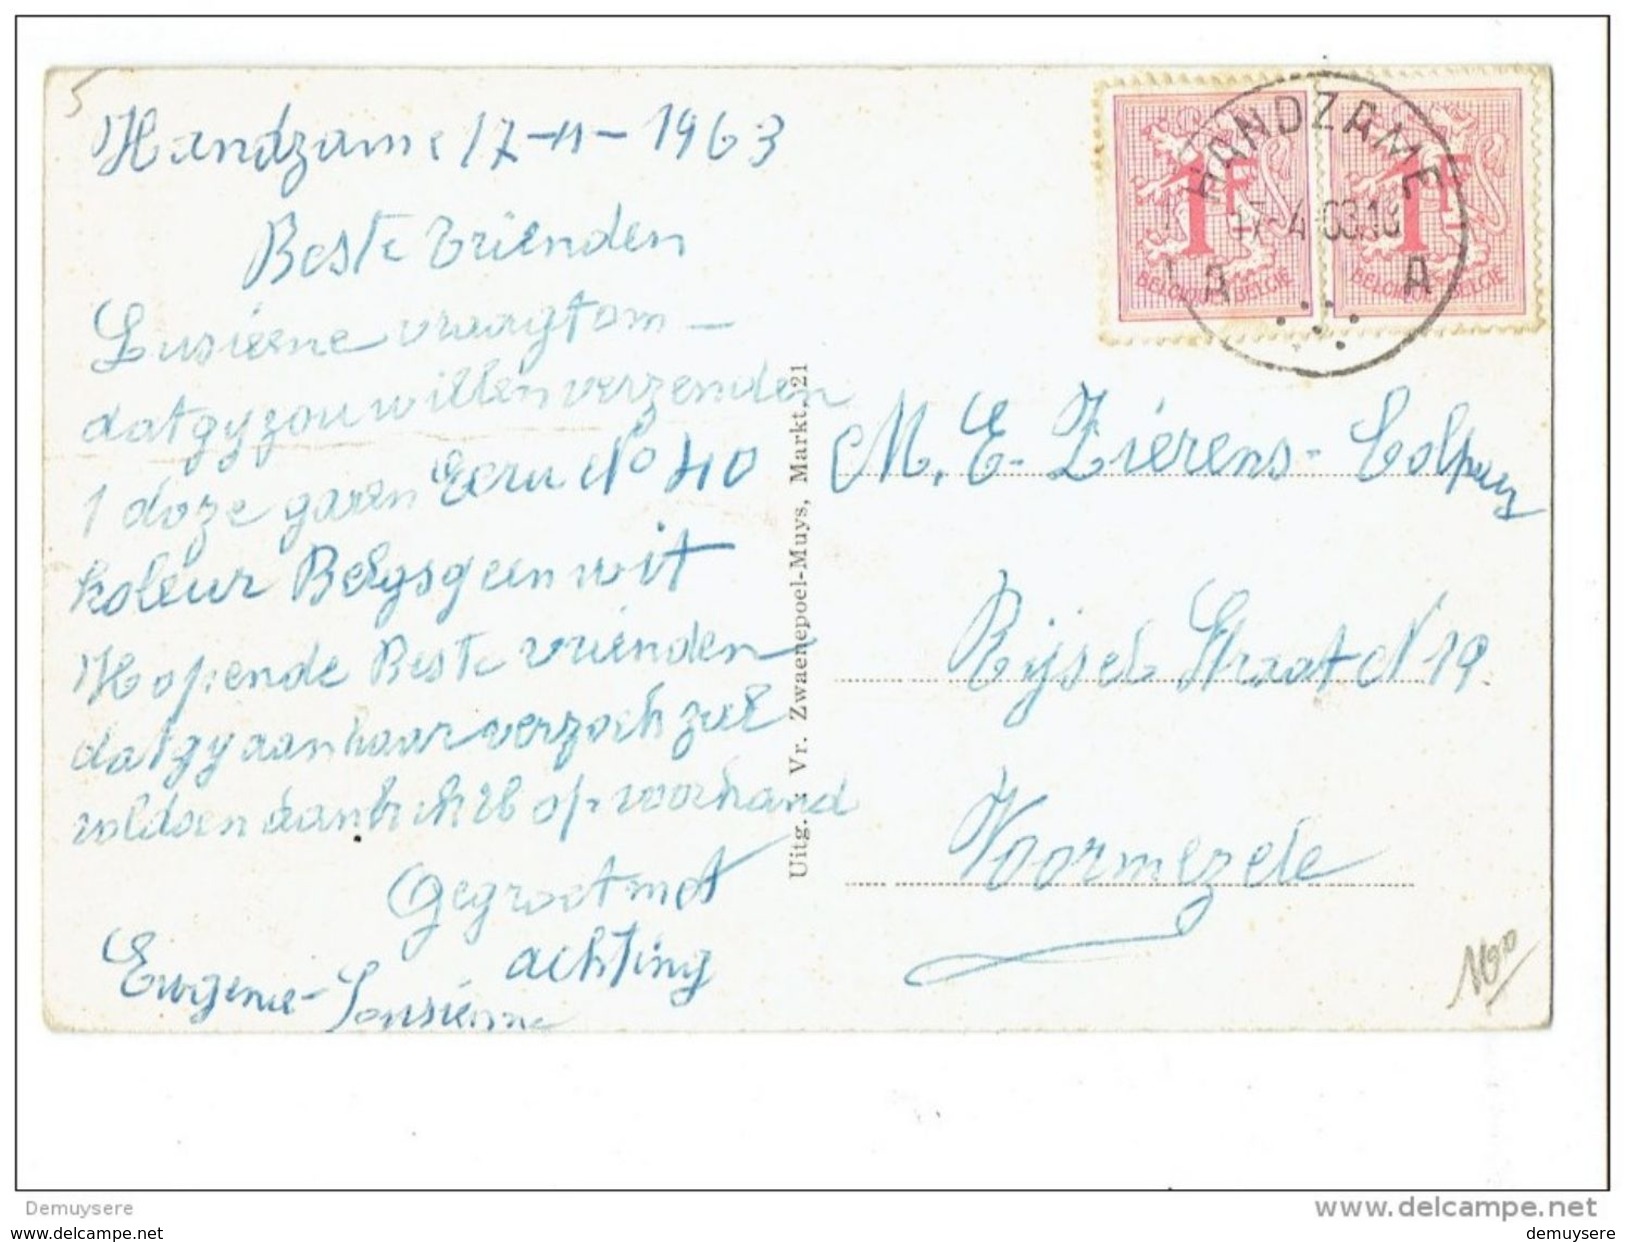 5
Handzame 17-4-1963
Beste vrienden
Lusiene vraagt om -
dat gy zou willen verzenden
1 doze garen Ecru No 40
koleur Belgs geen wit
Hopende Beste vrienden
dat gy aan haar verzoek zul
voldoen dank ik U op voorhand
Gegroet met
achting
Eurgenie - Lousienne
Uitg. : Vr. Zwaenepoel-Muys, Markt, 21
HANDZAME
17-4-63.18
A A
1F
BELGIQUE BELGIË
1F
BELGIQUE BELGIË
M. E - Zierens - Colpaey
Rijsel Straat N 19
Voormezele
Demuysere
demuysere
delcampe.net
demuysere